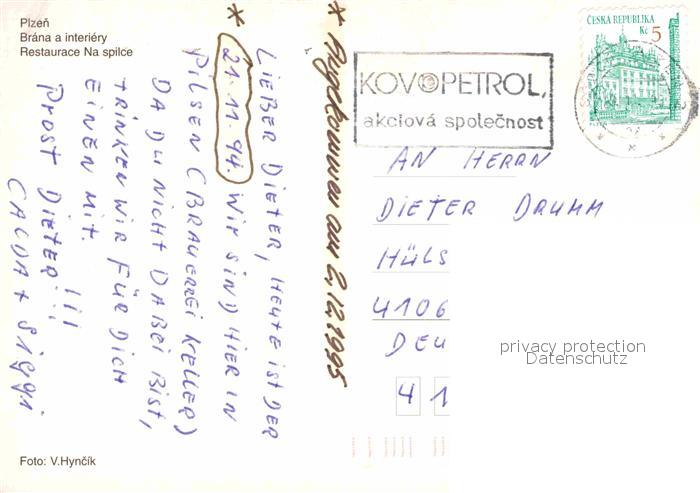 Plzeň
Brána a interiéry
Restaurace Na spilce
* Angekommen am 2.12.1995
*
LIEBER DIETER, HEUTE IST DER
21.11.94. WIR SIND HIER IN
PILSEN (BRAUEREI KELLER)
DA DU NICHT DABEI BIST,
TRINKEN WIR FÜR DICH
EINEN MIT.
PROST DIETER!!!
CALDA + SIGGI
Foto: V.Hynčík
KOVOPETROL,
akciová společnost
ČESKÁ REPUBLIKA
Kč 5
AN HERRN
DIETER DRUMM
HÜLS
4106
DEU
41
privacy protection
Datenschutz